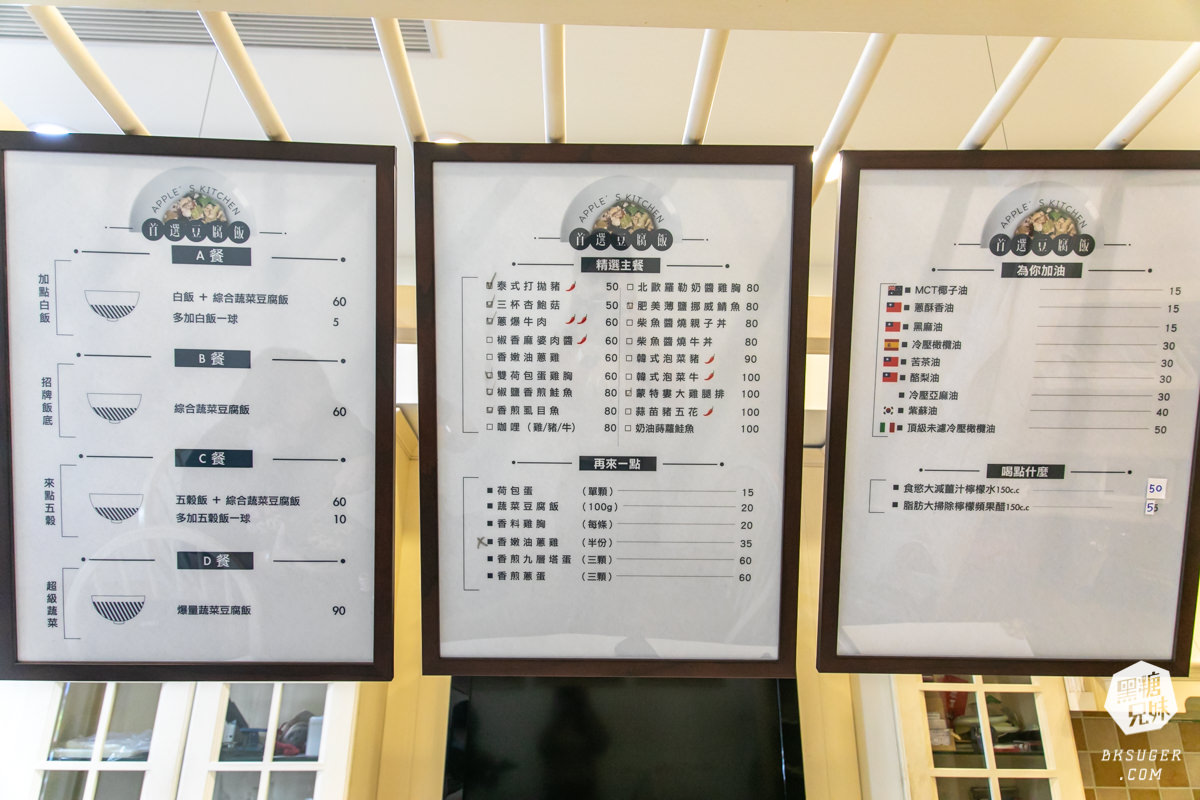 APPLE'S KITCHEN
首選豆腐飯
A 餐
加點白飯
白飯 + 綜合蔬菜豆腐飯 60
多加白飯一球 5
B 餐
招牌飯底
綜合蔬菜豆腐飯 60
C 餐
來點五穀
五穀飯 + 綜合蔬菜豆腐飯 60
多加五穀飯一球 10
D 餐
超級蔬菜
爆量蔬菜豆腐飯 90
APPLE'S KITCHEN
首選豆腐飯
精選主餐
泰式打拋豬 50
三杯杏鮑菇 50
蔥爆牛肉 60
椒香麻婆肉醬 60
香嫩油蔥雞 60
雙荷包蛋雞胸 60
椒鹽香煎鮭魚 80
香煎虱目魚 80
咖哩（雞/豬/牛） 80
北歐羅勒奶醬雞胸 80
肥美薄鹽挪威鯖魚 80
柴魚醬燒親子丼 80
柴魚醬燒牛丼 80
韓式泡菜豬 90
韓式泡菜牛 100
蒙特婁大雞腿排 100
蒜苗豬五花 100
奶油蒔蘿鮭魚 100
再來一點
荷包蛋 （單顆） 15
蔬菜豆腐飯 （100g） 20
香料雞胸 （每條） 20
香嫩油蔥雞 （半份） 35
香煎九層塔蛋 （三顆） 60
香煎蔥蛋 （三顆） 60
APPLE'S KITCHEN
首選豆腐飯
為你加油
MCT椰子油 15
蔥酥香油 15
黑麻油 15
冷壓橄欖油 30
苦茶油 30
酪梨油 30
冷壓亞麻油 30
紫蘇油 40
頂級未濾冷壓橄欖油 50
喝點什麼
食慾大減薑汁檸檬水150c.c 50
脂肪大掃除檸檬蘋果醋150c.c
黑糖兄妹
BKSUGER
.COM